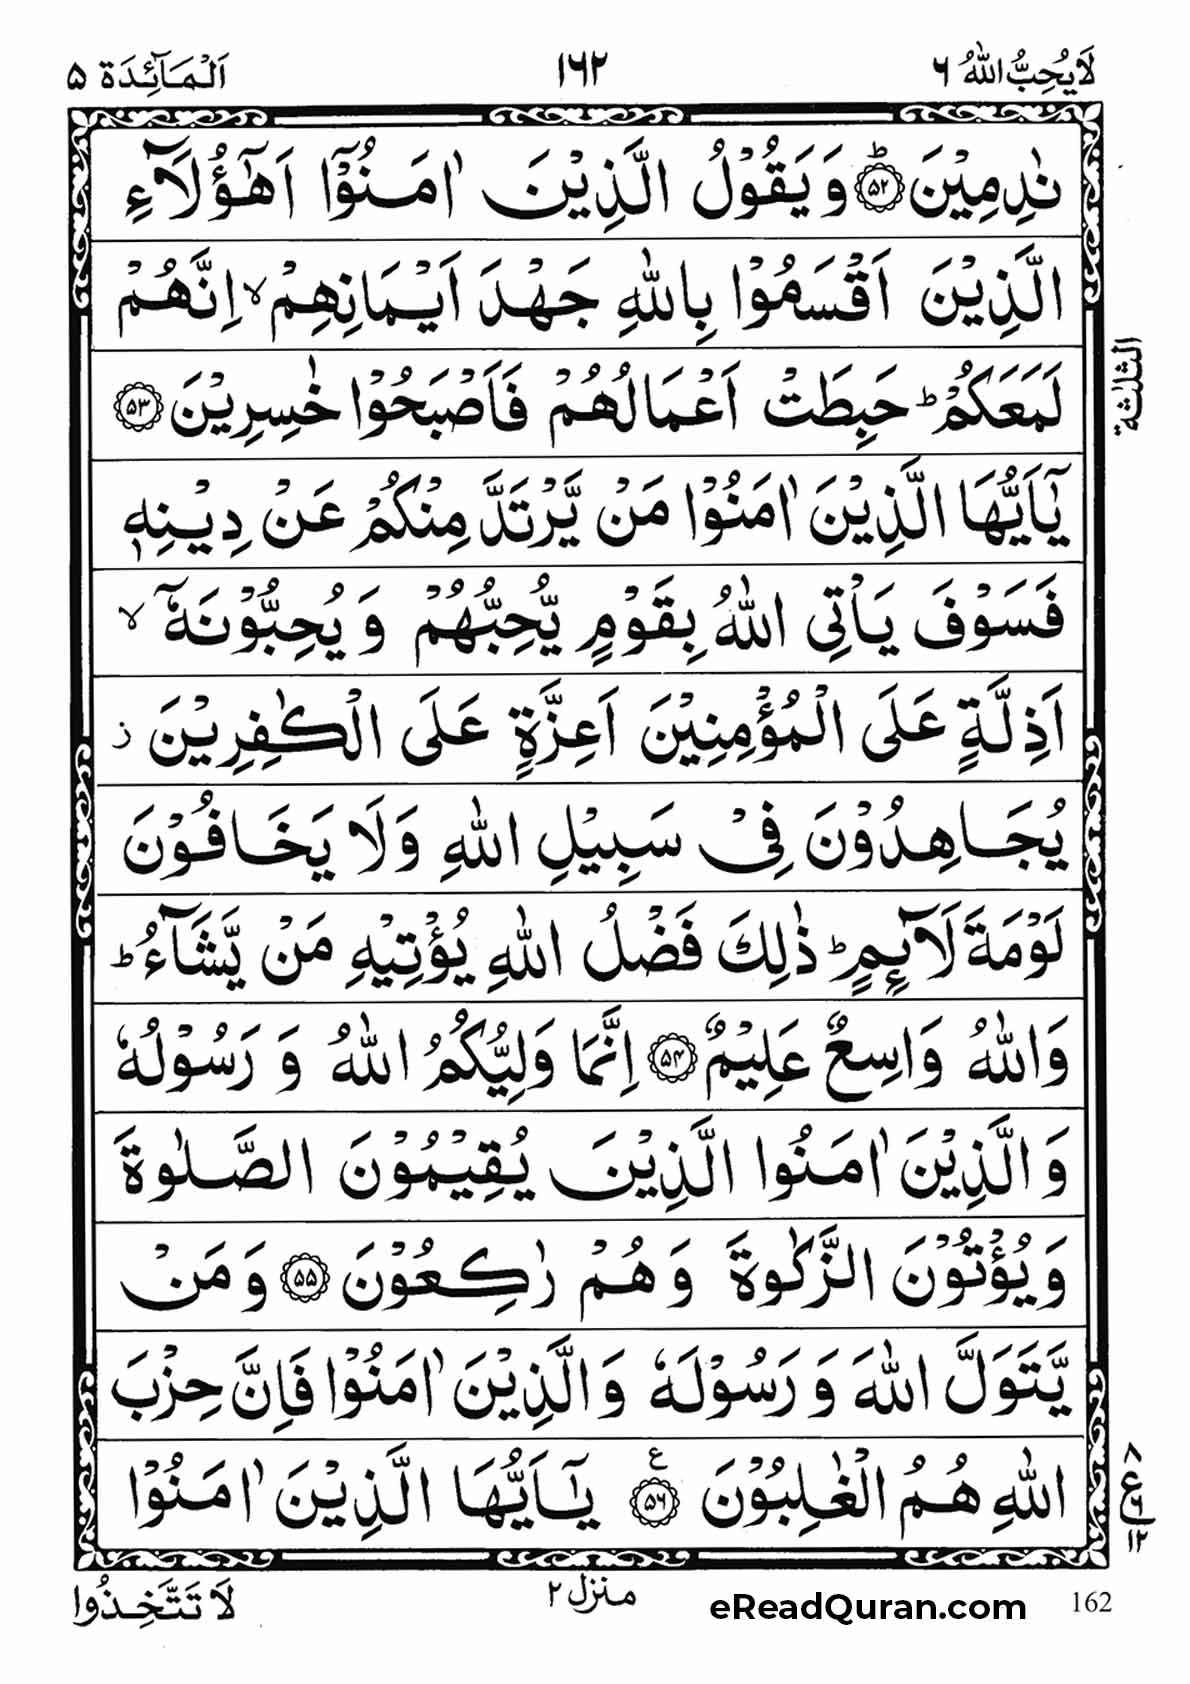 لَا يُحِبُّ اللّٰهُ ٦
١٦٢
اَلْمَآئِدَة ٥
نٰدِمِيْنَ ؕ ﴿۵۲﴾ وَ يَقُوْلُ الَّذِيْنَ اٰمَنُوْۤا اَهٰۤؤُلَآءِ
الَّذِيْنَ اَقْسَمُوْا بِاللّٰهِ جَهْدَ اَيْمَانِهِمْ ۙ اِنَّهُمْ
لَمَعَكُمْ ؕ حَبِطَتْ اَعْمَالُهُمْ فَاَصْبَحُوْا خٰسِرِيْنَ ﴿۵۳﴾
يٰۤاَيُّهَا الَّذِيْنَ اٰمَنُوْا مَنْ يَّرْتَدَّ مِنْكُمْ عَنْ دِيْنِهٖ
فَسَوْفَ يَاْتِي اللّٰهُ بِقَوْمٍ يُّحِبُّهُمْ وَ يُحِبُّوْنَهٗۤ ۙ
اَذِلَّةٍ عَلَى الْمُؤْمِنِيْنَ اَعِزَّةٍ عَلَى الْكٰفِرِيْنَ ز
يُجَاهِدُوْنَ فِيْ سَبِيْلِ اللّٰهِ وَلَا يَخَافُوْنَ
لَوْمَةَ لَآئِمٍ ؕ ذٰلِكَ فَضْلُ اللّٰهِ يُؤْتِيْهِ مَنْ يَّشَآءُ ؕ
وَاللّٰهُ وَاسِعٌ عَلِيْمٌ ﴿۵۴﴾ اِنَّمَا وَلِيُّكُمُ اللّٰهُ وَ رَسُوْلُهٗ
وَ الَّذِيْنَ اٰمَنُوا الَّذِيْنَ يُقِيْمُوْنَ الصَّلٰوةَ
وَيُؤْتُوْنَ الزَّكٰوةَ وَهُمْ رٰكِعُوْنَ ﴿۵۵﴾ وَ مَنْ
يَّتَوَلَّ اللّٰهَ وَ رَسُوْلَهٗ وَ الَّذِيْنَ اٰمَنُوْا فَاِنَّ حِزْبَ
اللّٰهِ هُمُ الْغٰلِبُوْنَ ﴿۵۶﴾ ع يٰۤاَيُّهَا الَّذِيْنَ اٰمَنُوْا
الثلٰثة
٨
ع
٦
١٢
لَا تَتَّخِذُوا
منزل ٢
eReadQuran.com
162